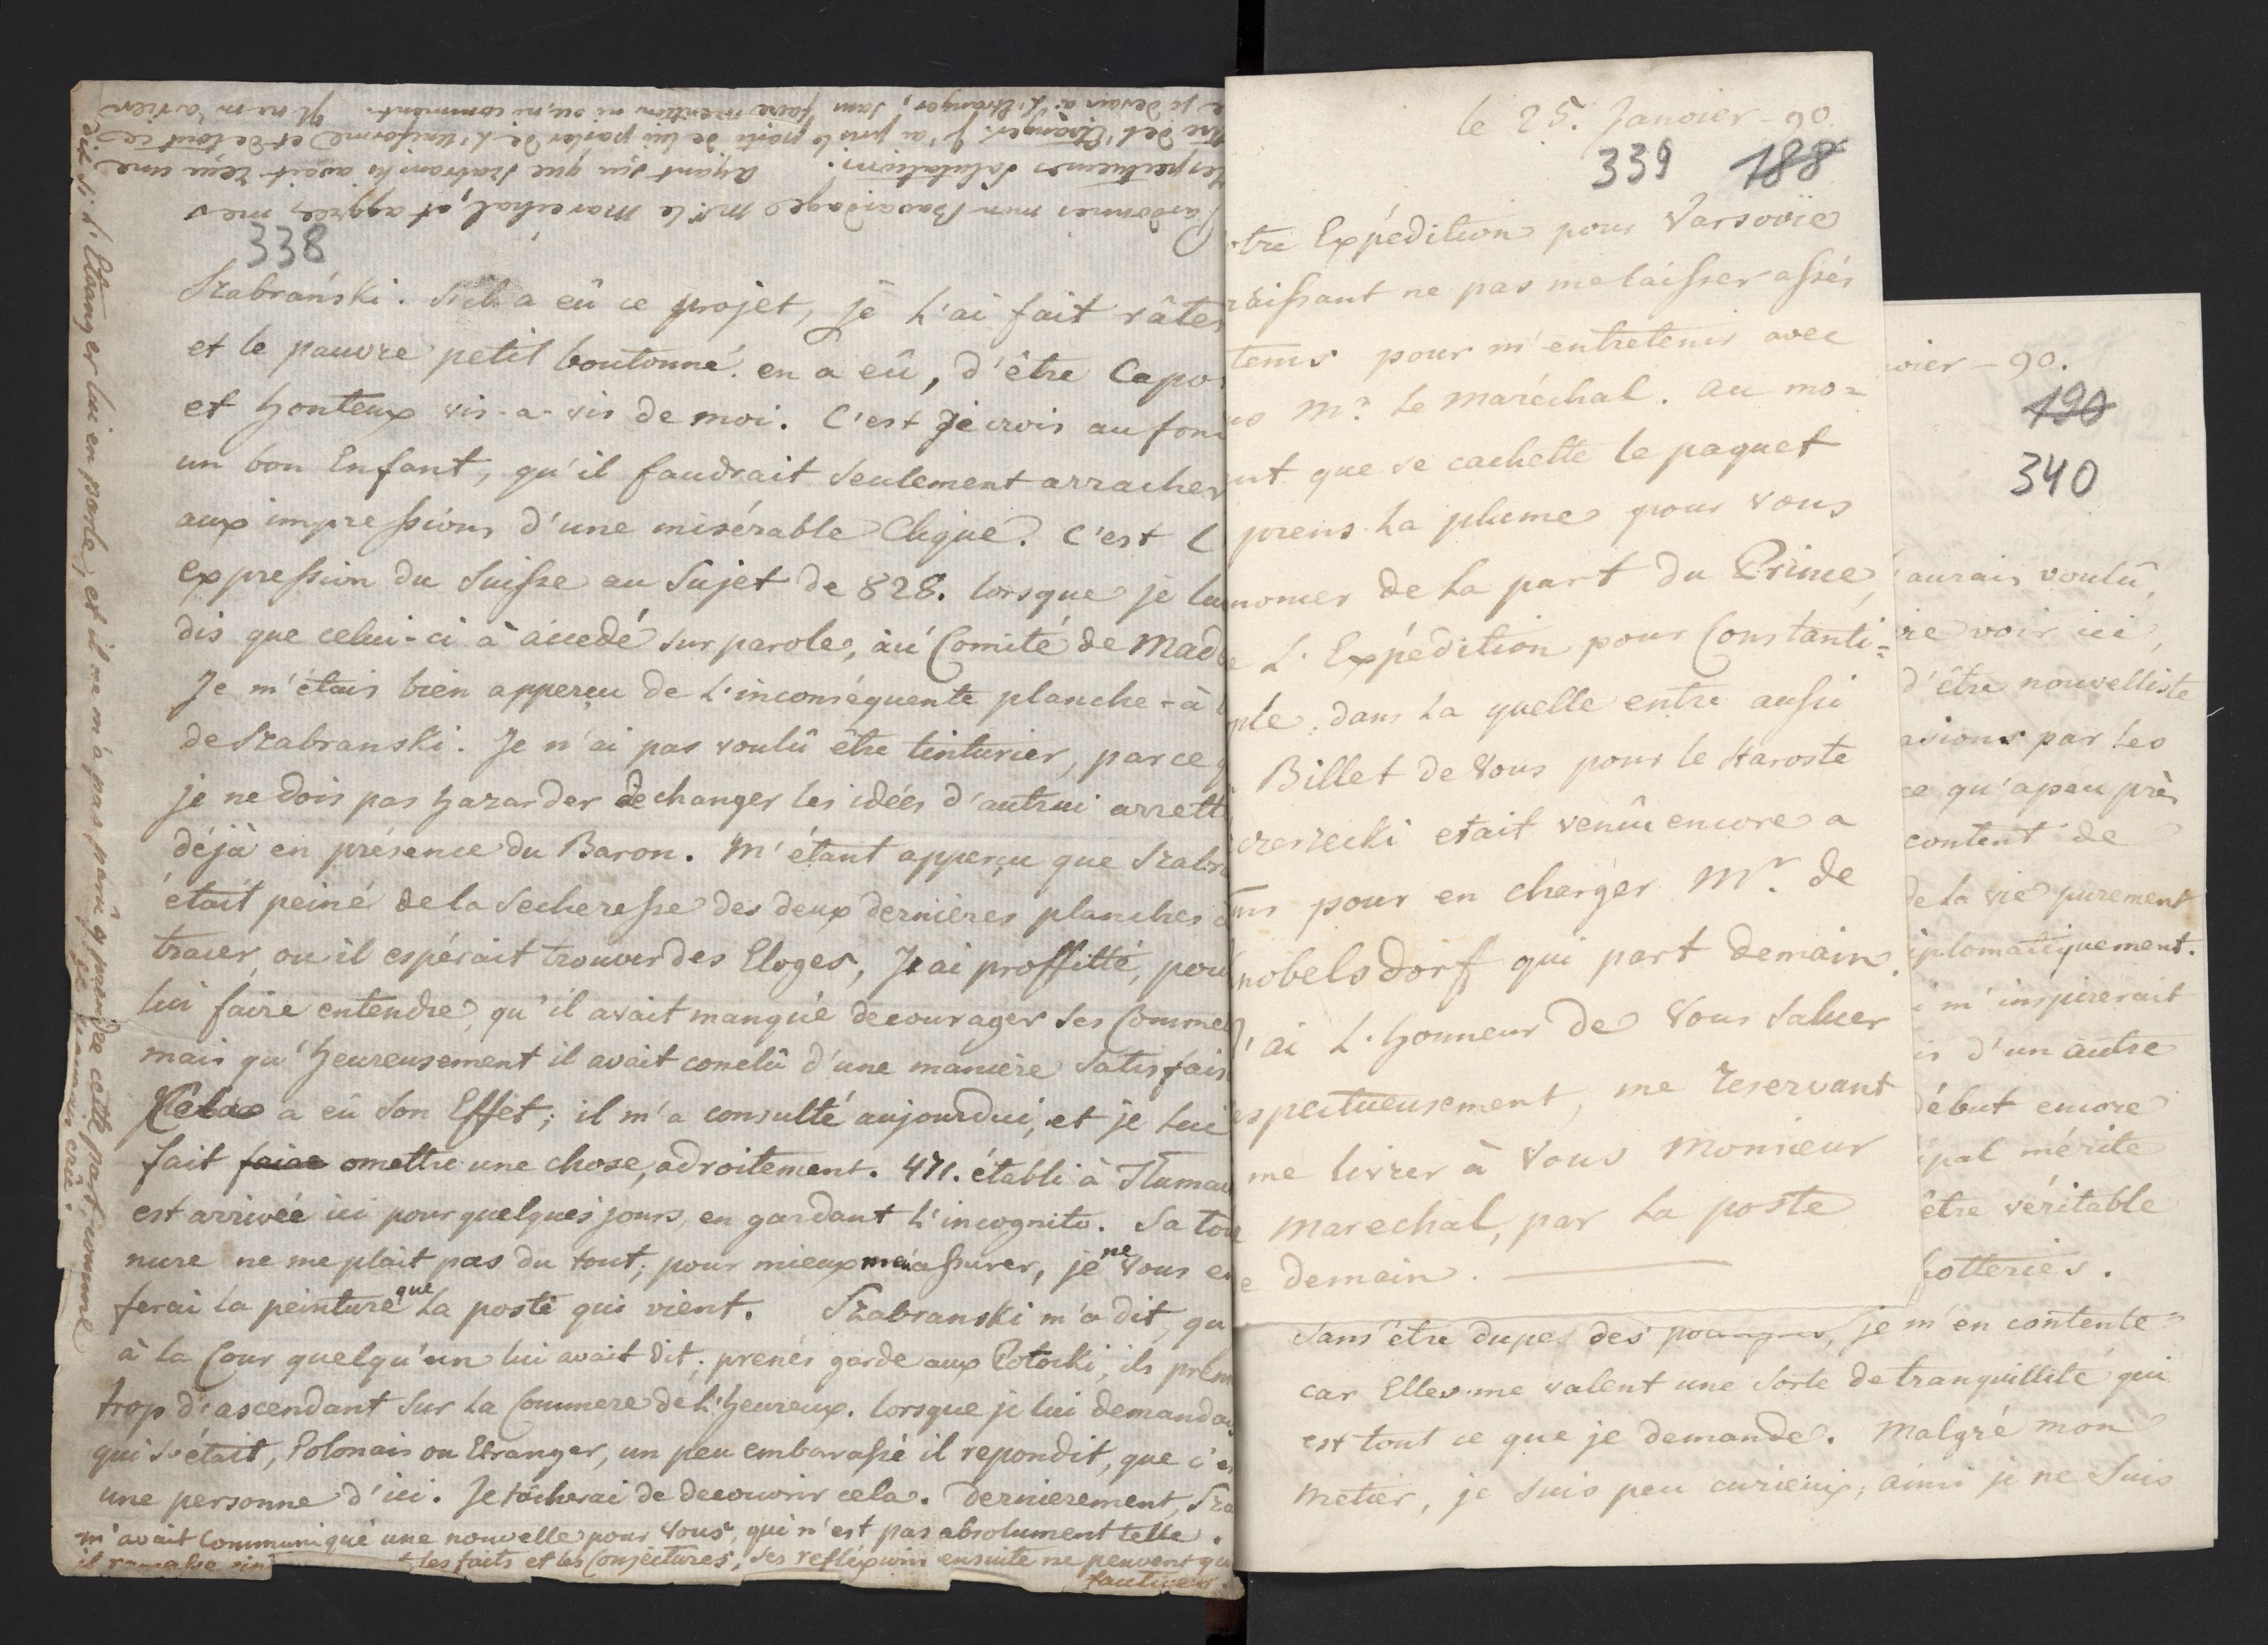 338
Szabrański. S'il a eû ce projet, je l'ai fait râter
et le pauvre petit boutonné en a eû, d'être Capo
et honteux vis-a-vis de moi. C'est je crois au fon
un bon Enfant, qu'il faudrait seulement arracher
aux impressions d'une misérable Clique. C'est l
expression du Suisse au Sujet de 828. lorsque je lui
dis que celui-ci a accedé sur parole, au Comité de Mad
Je m'étais bien apperçu de l'inconséquente planche-à
de Szabranski. Je n'ai pas voulû être teinturier, parceq
je ne dois pas hazarder de changer les idées d'autrui arrett
déjà en présence du Baron. M'étant apperçu que Szabr
était peiné de la Secheresse des deux dernières planches
tracer, ou il espérait trouver des Eloges, J'ai proffitté, pou
lui faire entendre, qu'il avait manqué decourager ses Comme
mais qu'heureusement il avait conclû d'une manière satisfais
Cela a eû son Effet; il m'a consulté aujourdui, et je lui
fait faire omettre une chose, adroitement. 471. établi à Tlumac
est arrivée ici pour quelques jours, en gardant l'incognito. Sa tou
nure ne me plait pas du tout; pour mieux m'assurer, je ne vous e
ferai la peinture que la poste qui vient. Szabranski m'a dit, qu
à la Cour quelqu'un lui avait dit; prenés garde aux Potocki, ils pren
trop d'ascendant sur la Commere de l'heureux. lorsque je lui demandai
qui s'était, Polonais ou Etranger, un peu embarassé il repondit, que c'e
une personne d'ici. Je tâcherai de decouvrir cela. Dernierement, Sza
m'avait Communiqué une nouvelle pour Vous, qui n'est pas absolument telle.
il ramasse les faits et les Conjectures, ses refléxions ensuite ne peuvent qu
fautives
Pardonnes mon Bavardage Mr. le Marechal, et aggrées mes
respectueuses Salutations. Ayant sçu que Szabranski avait reçu une
de l'Etranger. J'ai pris le parti de lui parler de L'Uniforme et de tout ce
e je devais à L'Etranger, sans faire mention ni ou, ni comment. Il ne m'a rien
dit si l'Etranger lui en parle, et il ne m'a pas parû y prendre cette part, comme
le 25. Janvier - 90.
339 188
otre Expédition pour Varsovie
raissant ne pas me laisser assés
tems pour m'entretenir avec
us Mr. le Maréchal. au mo=
nt que se cachette le paquet
prens la plume pour vous
noncer de la part du Prince,
e L'Expédition pour Constanti=
ple, dans la quelle entre aussi
Billet de Vous pour le Staroste
czerzecki etait venû encore a
ms pour en charger Mr. de
nobelsdorf qui part demain.
J'ai L'honneur de Vous saluer
espectueusement, me reservant
me livrer à Vous Monsieur
Marechal, par la poste
e demain.
vier - 90.
190
340
aurais voulû,
re voir ici,
d'être nouvelliste
asions par les
ce qu'apeu près
content de
de la vie purement
iplomatiquement.
i m'inspirerait
is d'un autre
début encore
ipal mérite
être véritable
sotteries.
sans être dupe des je m'en contente
car Elles me valent une sorte de tranquillité qui
est tout ce que je demande. Malgré mon
Metier, je suis peu curieux; ainsi je ne suis